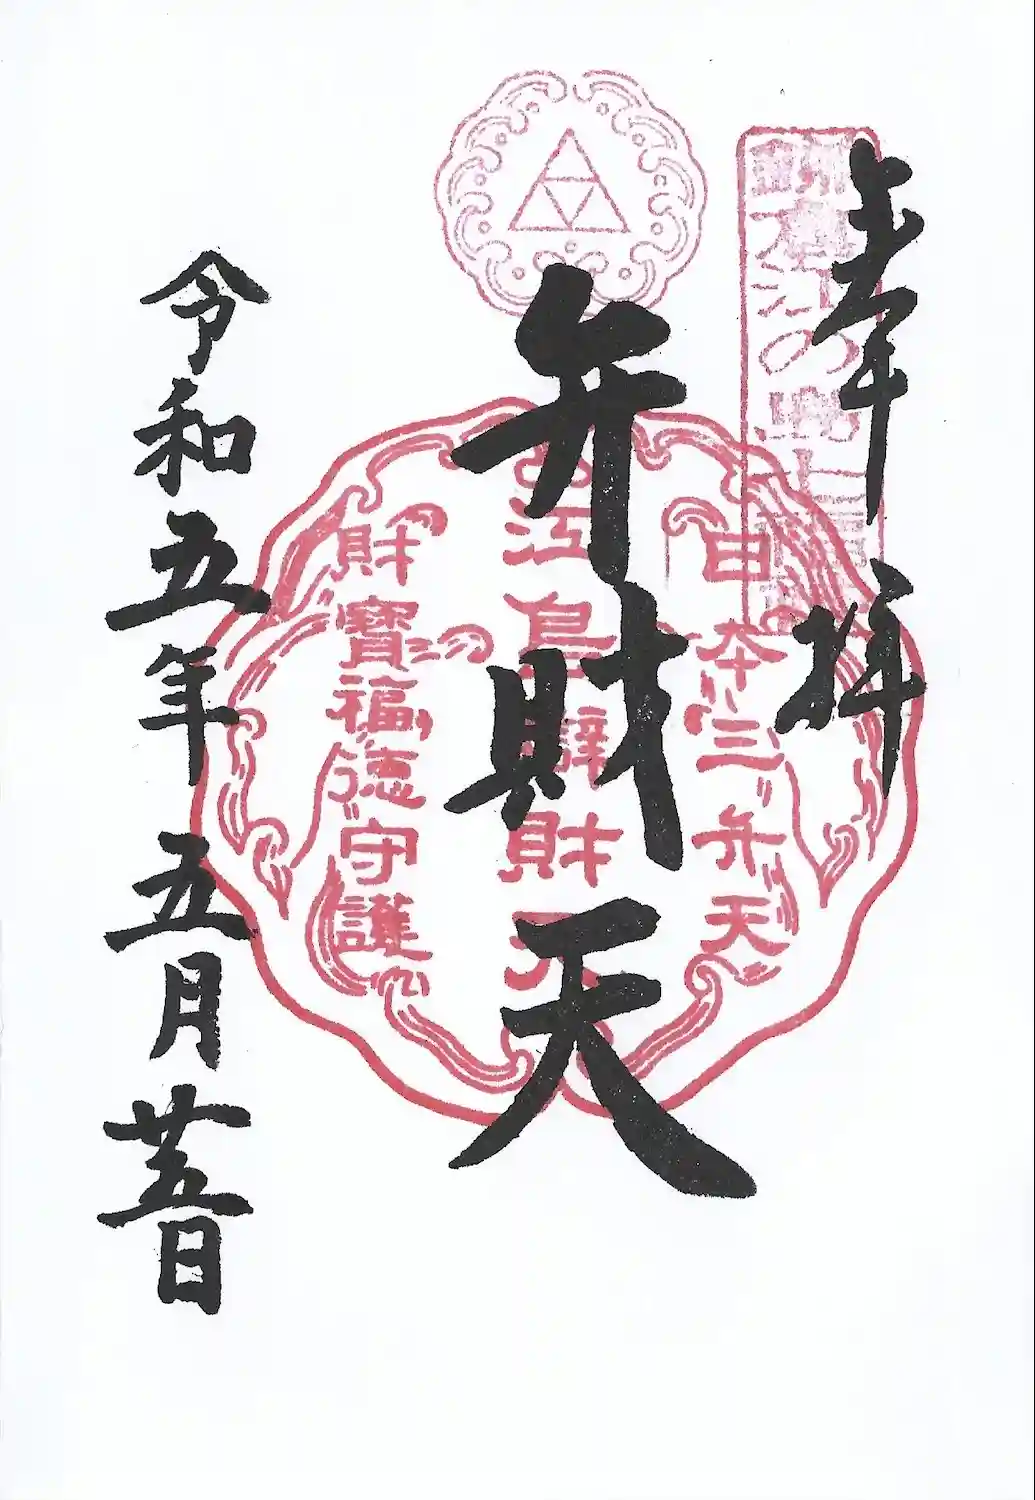 奉拝
日本三弁天
弁財天
江島辨財天
財寶福徳守護
令和五年五月廿五日